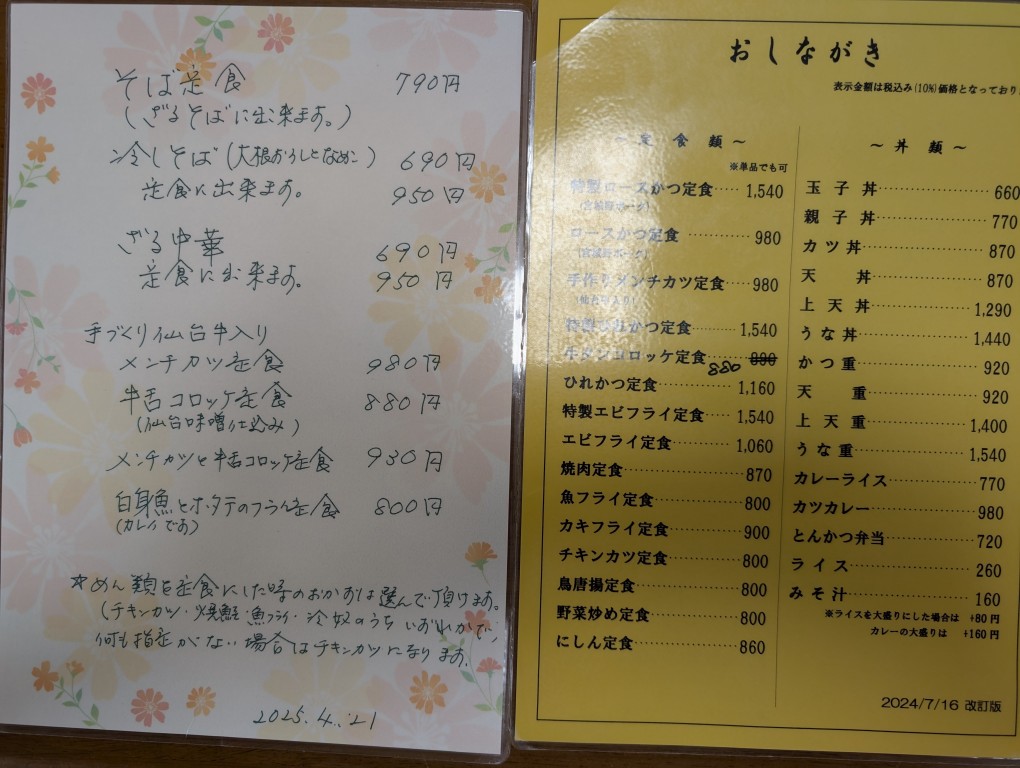 そば定食 790円
(ざるそばに出来ます。)
冷しそば(大根おろしとなめこ) 690円
定食に出来ます。 950円
ざる中華 690円
定食に出来ます。 950円
手づくり仙台牛入り
メンチカツ定食 980円
牛舌コロッケ定食 880円
(仙台味噌仕込み)
メンチカツと牛舌コロッケ定食 930円
白身魚とホタテのフライ定食 800円
(カレイです)
☆めん類を定食にした時のおかずは選んで頂けます。
(チキンカツ・焼鮭・魚フライ・冷奴のうちいずれかで、
何も指定がない場合はチキンカツになります。
2025.4.21
おしながき
表示金額は税込み(10%)価格となっており
~定食類~
※単品でも可
特製ロースかつ定食 1,540
(宮城野ポーク)
ロースかつ定食 980
(宮城野ポーク)
手作りメンチカツ定食 980
(仙台牛入り)
特製ひれかつ定食 1,540
牛タンコロッケ定食 890
880
ひれかつ定食 1,160
特製エビフライ定食 1,540
エビフライ定食 1,060
焼肉定食 870
魚フライ定食 800
カキフライ定食 900
チキンカツ定食 800
鳥唐揚定食 800
野菜炒め定食 800
にしん定食 860
~丼類~
玉子丼 660
親子丼 770
カツ丼 870
天丼 870
上天丼 1,290
うな丼 1,440
かつ重 920
天重 920
上天重 1,400
うな重 1,540
カレーライス 770
カツカレー 980
とんかつ弁当 720
ライス 260
みそ汁 160
※ライスを大盛りにした場合は +80円
カレーの大盛りは +160円
2024/7/16 改訂版